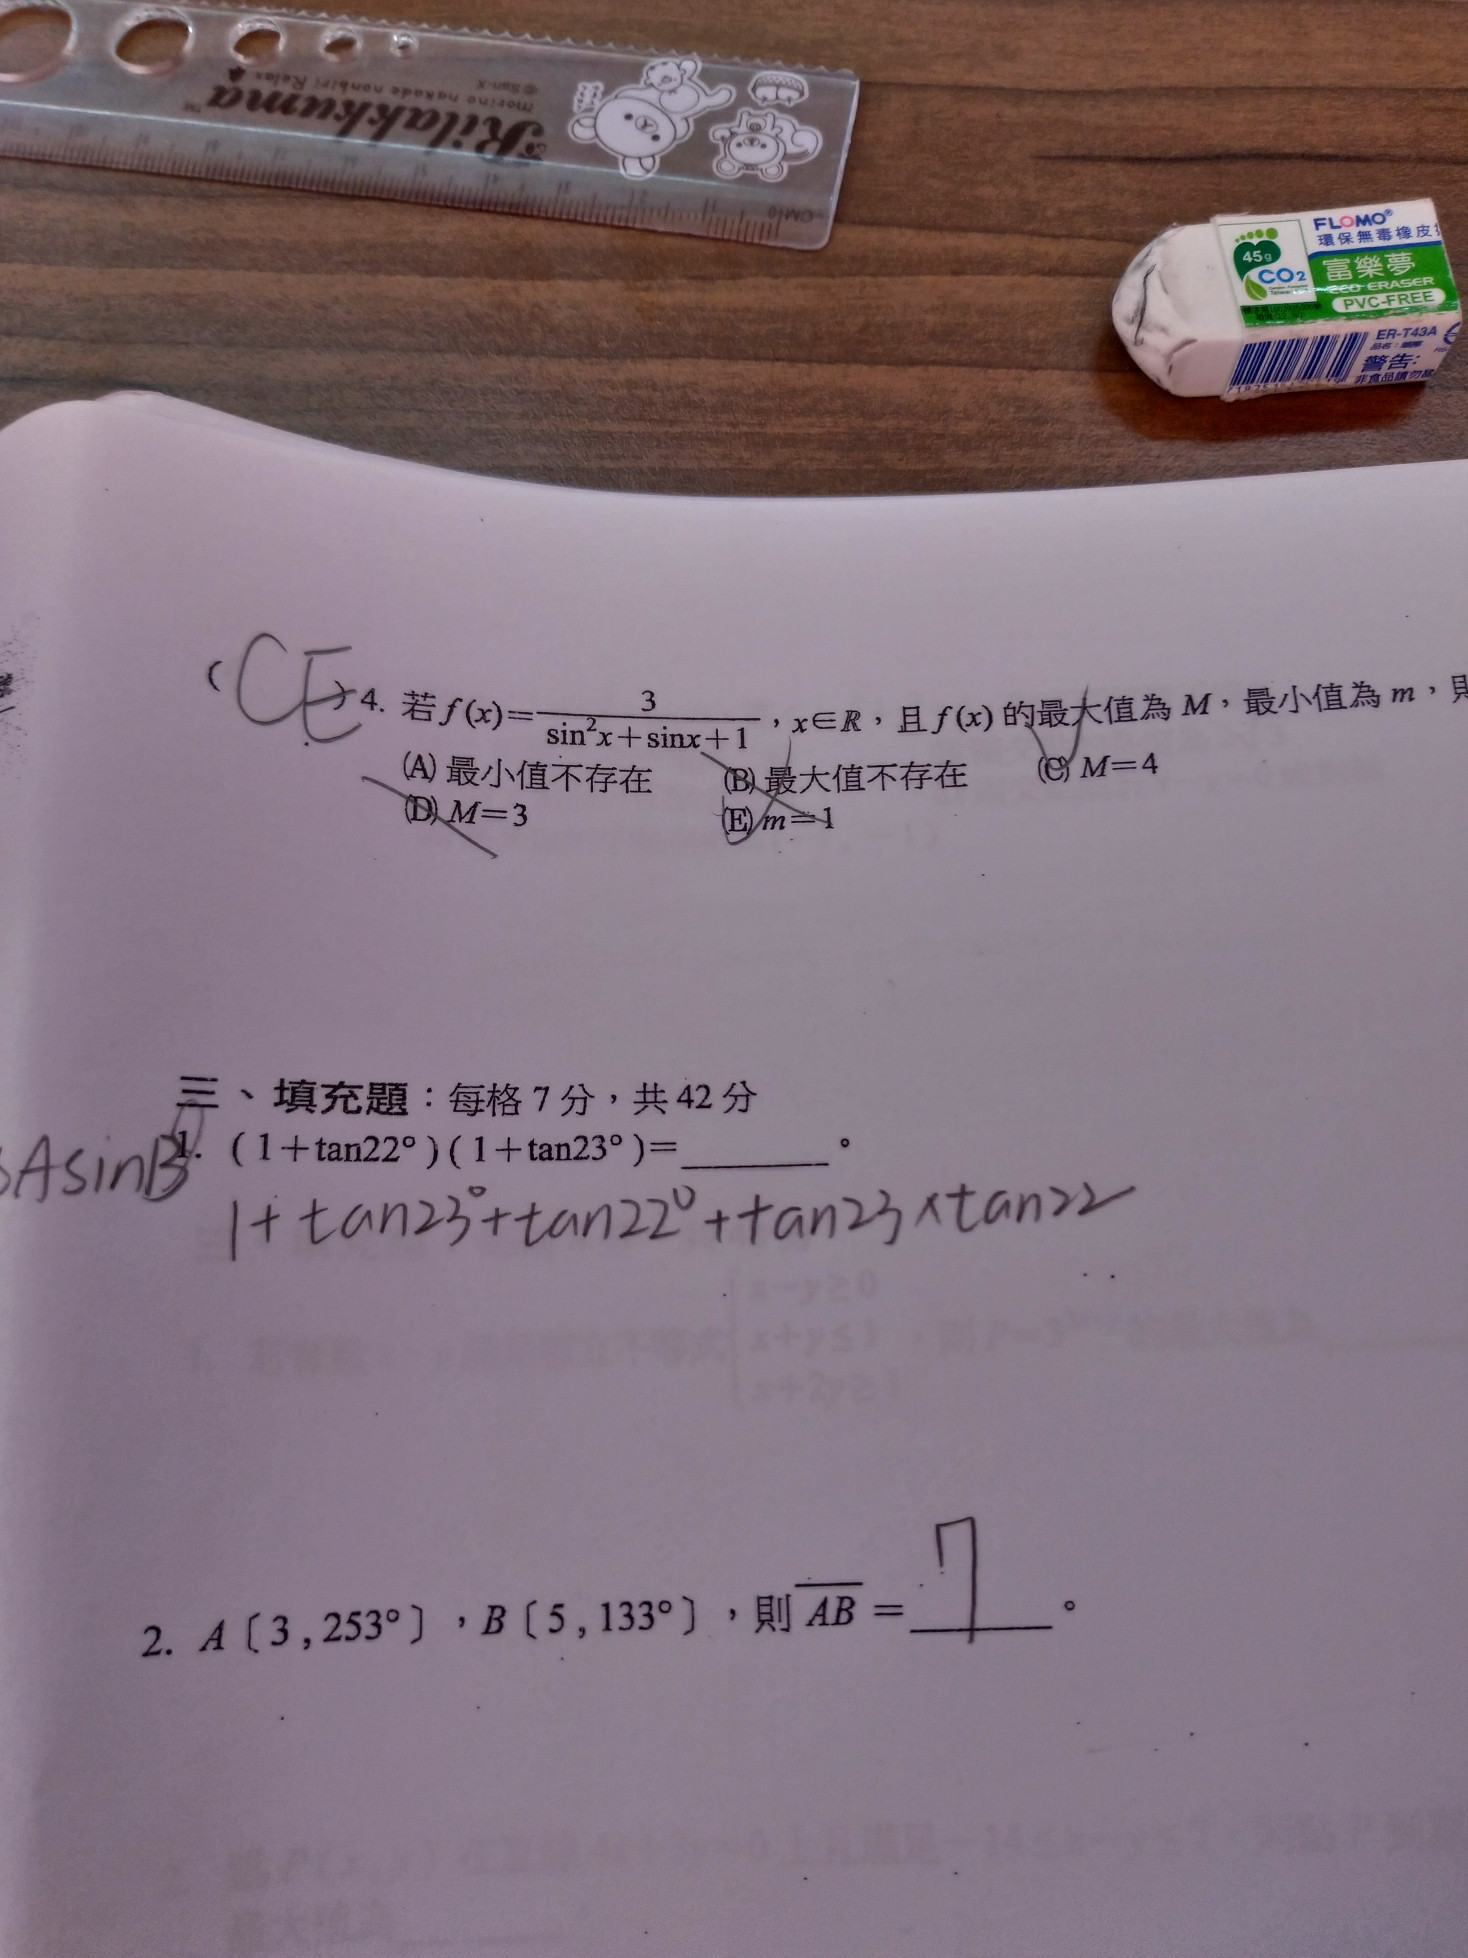 Rilakkuma™
morino nakade nonbiri Relax
©San-X
CM 0
FLOMO®
環保無毒橡皮擦
45g
CO2
富樂夢
ECO ERASER
PVC-FREE
ER-T43A
警告:
非食品請勿
(CE) 4. 若f(x)=3/(sin²x+sinx+1),x∈R,且f(x)的最大值為M,最小值為m,則
(A) 最小值不存在 (B) 最大值不存在 (C) M=4
(D) M=3 (E) m=1
三、填充題:每格7分,共42分
1. (1+tan22°)(1+tan23°)=______。
AsinB
1+tan23°+tan22°+tan23×tan22
2. A〔3,253°〕,B〔5,133°〕,則AB=7。